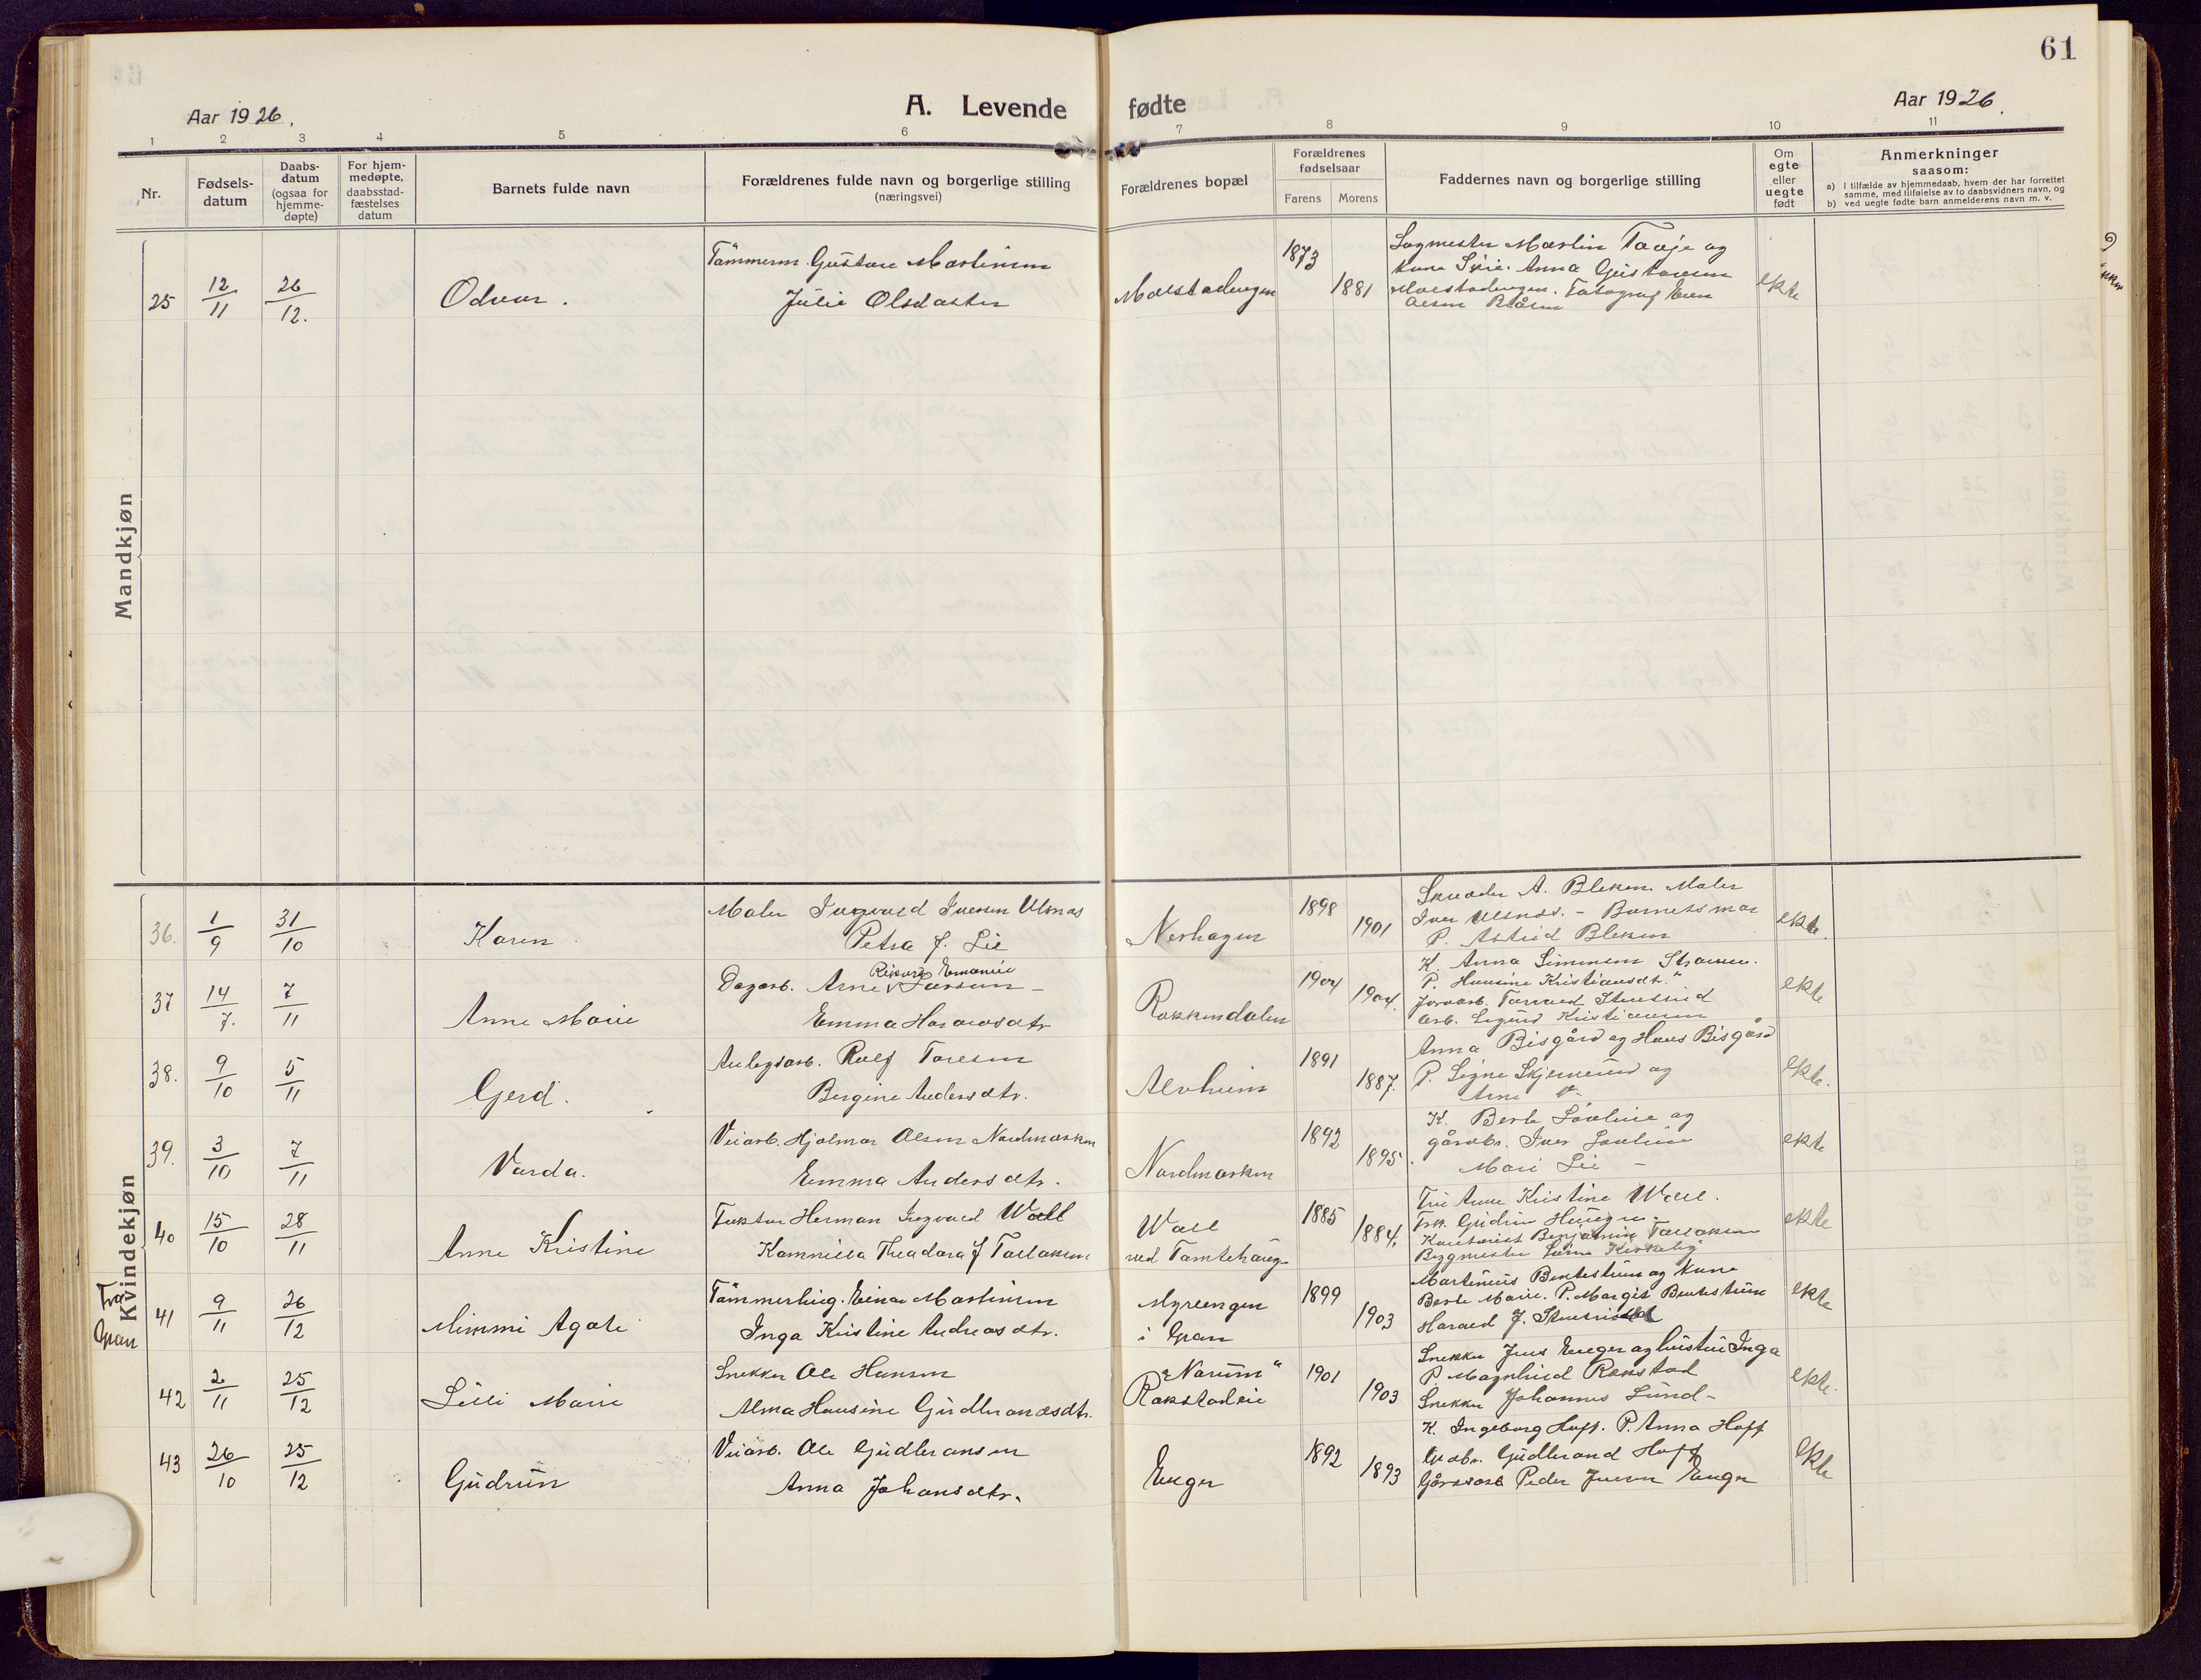 61
Aar 1926.
A. Levende fødte
Aar 1926.
1 2 3 4 5 6 7 8 9 10 11
Nr.
Fødsels-
datum
Daabs-
datum
(ogsaa for
hjemme-
døpte)
For hjem-
medøpte,
daabsstad-
fæstelses
datum
Barnets fulde navn
Forældrenes fulde navn og borgerlige stilling
(næringsvei)
Forældrenes bopæl
Forældrenes
fødselsaar
Farens Morens
Faddernes navn og borgerlige stilling
Om
egte
eller
uegte
født
Anmerkninger
saasom:
a) i tilfælde av hjemmedaab, hvem der har forrettet
samme, med tilføielse av to daabsvidners navn, og
b) ved uegte fødte barn anmelderens navn m. v.
Mandkjøn
25 12/11 26/12. Odvar.
Tømmerm. Gustav Martinsen
Julie Olsdatter
Molstadengen
1873 1881
Sagmester Martin Taaje og
kone Anna Gustavsen
Molstadengen. Fotograf Even
Olsen
ekte
Kvindekjøn
36. 1/9 31/10 Karen
Maler Ingvald Iversen Ulsnes
Petra J. Lie
Nerhagen
1898 1901
Skredder A. Bleken. Maler
Iver Ulsnes. - Barnets mor
P. Astrid Bleken
ekte.
37 14/7. 7/11 Anne Marie
Dagarb. Arne Larsen -
Emma Haraldsdtr
Rokkendalen
1904 1904.
K. Anna Simensen
P. Hansine Kristiansdtr.
Jordarb. Torvald Stensrud
Arb. Sigurd Kristiansen
ekte
38. 9/10 5/11 Gerd.
Anlegsarb. Rolf Toresen
Bergine Andersdtr.
Alvheim
1891 1887.
Anna Bisgård og Hans Bisgård
P. Signe Skjerverud og
Arne
ekte.
39. 3/10 7/11 Varda.
Veiarb. Hjalmar Olsen Nordmarken
Emma Andersdtr.
Nordmarken
1892 1895.
K. Berte Sørlien og
gårdbr. Iver Sørlien
Mari Lie -
ekte
40 15/10 28/11 Anne Kristine
Faktor Herman Ingvald Woll
Kamnilla Theodora J Torlaksen
Woll
ved Tomtehaug-
1885 1884.
Fru Anne Kristine Woll.
Frk. Gudrun Haugen.
Kontorist Benjamin Torlaksen
Bygmester Kirkelig
ekte
Fra
Gran
41 9/11 26/12 Mimmi Agate
Tømmerhug. Einar Martinsen
Inga Kristine Andreasdtr.
Myrengen
i Gran
1899 1903
Martinius Bentestuen og kone
Berte Marie. P. Margit Bentestuen
Harald J. Stensrud
ekte
42 2/11 25/12 Lilli Marie
Snekker Ole Hansen
Alma Hansine Gudbrandsdtr.
"Norum"
Rokstadeie
1901 1903
Snekker Jens Enger og hustru Inga
P. Magnhild Rokstad
Snekker Johannes Lund -
ekte.
43 26/10 25/12 Gudrun
Veiarb. Ole Gudbransen
Anna Johansdtr.
Enger
1892 1893
K. Ingeborg Hoff. P. Anna Hoff
Gudbrand Hoff
Gårdsarb Peder Iversen Enger
ekte